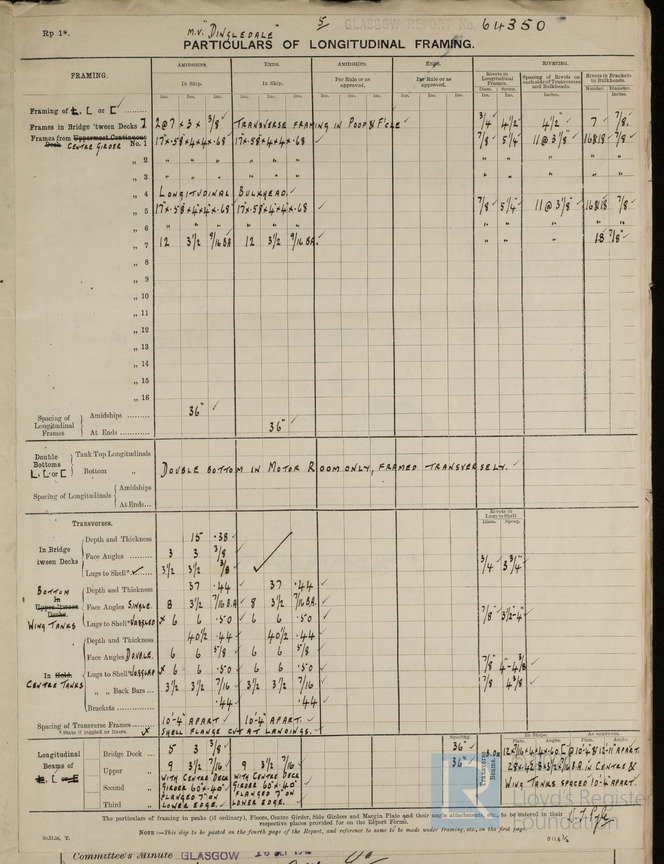 Rp 1*.
M.V. "DINGLEDALE"
5
GLASGOW REPORT No. 64350
PARTICULARS OF LONGITUDINAL FRAMING.
FRAMING.
AMIDSHIPS. ENDS. AMIDSHIPS. ENDS. RIVETING.
In Ship. In Ship. Per Rule or as approved. Per Rule or as approved.
Rivets in Longitudinal Frames. Spacing of Rivets on each side of Transverses and Bulkheads. Rivets in Brackets to Bulkheads.
Ins. Ins. Ins. Ins. Ins. Ins. Ins. Ins. Ins. Ins. Ins. Ins. Diam. Ins. Spcng. Ins. Inches. Number. Diameter. Inches.
Framing of L, [ or [
Frames in Bridge 'tween Decks 2@7 × 3 × 3/8 TRANSVERSE FRAMING IN POOP & F'CLE 3/4 4 1/2 4 1/2 7 7/8
Frames from Uppermost Continuous Deck CENTRE GIRDER No. 1 17×.58×4×4×.68 17×.58×4×4×.68 7/8 5 1/4 11@3 1/8" 16&18 7/8
„ 2 " " " " " " " " " " " " "
„ 3 " " " " " " " " " " " " "
„ 4 LONGITUDINAL BULKHEAD.
„ 5 17×.58×4×4×.68 17×.58×4×4×.68 7/8 5 1/4 11@3 1/8" 16&18 7/8
„ 6 " " " " " " " " " " " " "
„ 7 12 3 1/2 9/16 B.A. 12 3 1/2 9/16 B.A. " " " 18 7/8
„ 8
„ 9
„ 10
„ 11
„ 12
„ 13
„ 14
„ 15
„ 16
Spacing of Longitudinal Frames
Amidships 36"
At Ends 36"
Double Bottoms L, [ or [
Tank Top Longitudinals
Bottom „ DOUBLE BOTTOM IN MOTOR ROOM ONLY, FRAMED TRANSVERSELY.
Spacing of Longitudinals
Amidships
At Ends
Transverses.
Rivets in Lugs to Shell.
Diam. Spcng.
In Bridge 'tween Decks
Depth and Thickness 15 .38
Face Angles 3 3 3/8
Lugs to Shell* 3 1/2 3 1/2 3/8 3/4 3 3/4"
BOTTOM In Upper 'tween Decks WING TANKS
Depth and Thickness 37 .44 37 .44
Face Angles SINGLE. 8 3 1/2 7/16 B.A. 8 3 1/2 7/16 B.A.
Lugs to Shell* JOGGLED × 6 6 .50 6 6 .50 7/8 3 1/2-4"
In Hold CENTRE TANKS
Depth and Thickness 40 1/2 .44 40 1/2 .44
Face Angles DOUBLE. 6 6 5/8 6 6 5/8
Lugs to Shell* JOGGLED × 6 6 .50 6 6 .50 7/8 4"-4 3/8
„ „ Back Bars 3 1/2 3 1/2 7/16 3 1/2 3 1/2 7/16 7/8 4 3/8
Brackets .44 .44
Spacing of Transverse Frames 10'-4" APART 10'-4" APART.
* State if joggled or liners. × SHELL FLANGE CUT AT LANDINGS.
Spacing. In Ships. As approved.
Plate. Angles. Plate. Angles.
Longitudinal Beams of L, [ or [
Bridge Deck 5 3 3/8 36"
Upper „ 9 3 1/2 7/16 9 3 1/2 7/16 36"
Second „
Third „
WITH CENTRE DECK GIRDER 60"×.40" FLANGED 7" ON LOWER EDGE.
WITH CENTRE DECK GIRDER 60"×.40" FLANGED 7" ON LOWER EDGE.
Transverse Beams.
WING TANKS SPACED 10'-4" APART.
The particulars of framing in peaks (if ordinary), Floors, Centre Girder, Side Girders and Margin Plate and their angle attachments, etc., to be entered in their respective places provided for on the Report Form.
NOTE:—This slip to be pasted on the fourth page of the Report, and reference to same to be made under framing, etc., on the first page.
Lloyd's Register Foundation
Committee's Minute GLASGOW